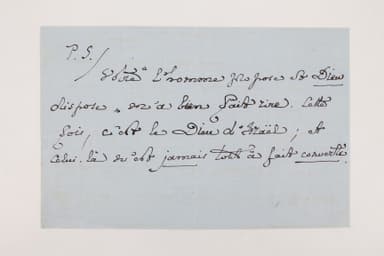 P. S. /
Votre "l'homme propose et Dieu
dispose" m'a bien fait rire. Cette
fois, c'est le Dieu d'Israël ; et
Celui-là n'est jamais tout à fait converti.